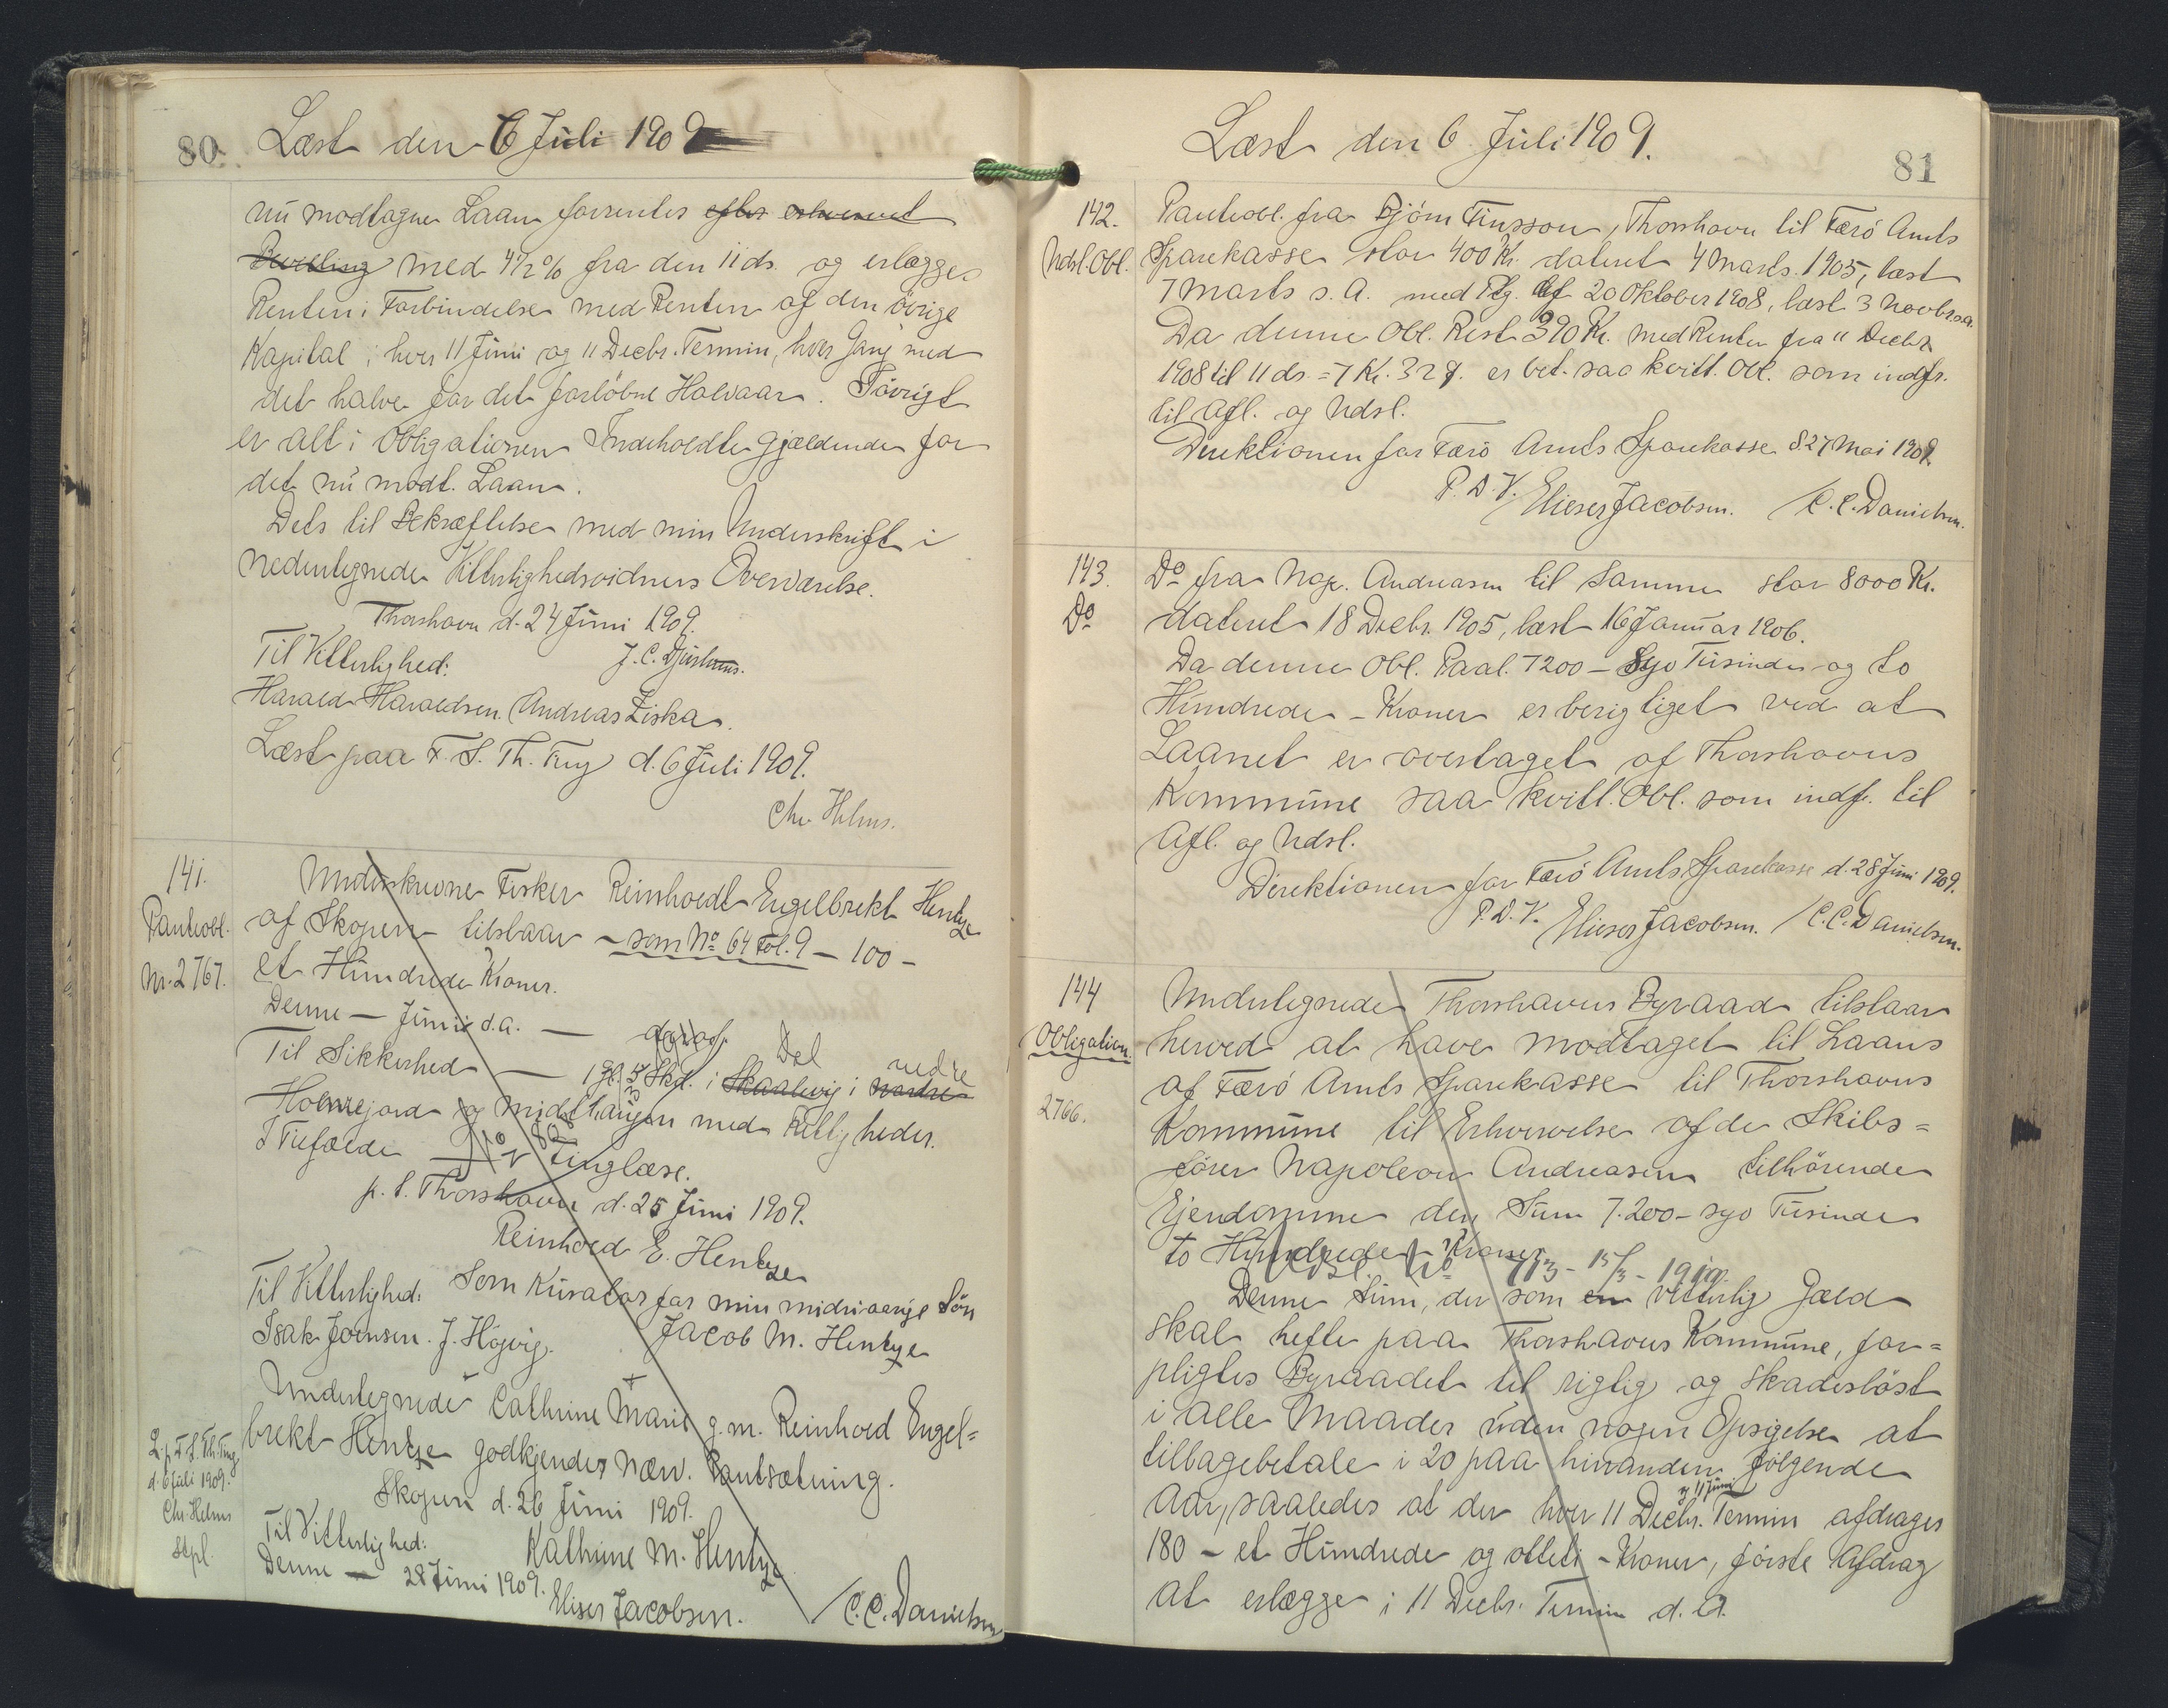 80.
Læst den 6 Juli 1909
nu modtagne Laan forrentes efter erhvervet
Bevilling med 4 1/2 % fra den 11 ds. og erlægges
Renten i Forbindelse med Renten af den övrige
Kapital i hver 11 Juni og 11 Decbr. Termin, hver Gang med
det halve for det forlöbne Halvaar. Iövrigt
er alt i Obligationen Indeholdte gjældende for
det nu modt. Laan.
Dets til Bekræftelse med min Underskrift i
Nedentegnede Vitterlighedsvidners Overværelse.
Thorshavn d. 24 Juni 1909.
Til Vitterlighed: J. C. Djurhuus.
Harald Haraldsen. Andreas Ziska.
Læst paa F. S. Th. Ting d. 6 Juli 1909.
Chr. Helms.
141.
Panteobl.
Nr. 2767.
Underskrevne Fisker Reinholdt Engelbrekt Hentze
af Skopen tilstaar - som No 64 Fol. 9 - 100 -
et Hundrede Kroner.
Denne - Juni d. A. -
Til Sikkerhed - 1 Gl. 5 Skd. i Skaalevig i nordre
Del nedre
Holmejord og Midthaugen med Rettigheder.
I Tilfælde - tinglæse.
p. t. Thorshavn d. 25 Juni 1909.
Reinhold E. Hentze
Til Vitterlighed: Som Kurator for min mindreaarige Sön
Isak Joensen. J. Högvig. Jacob M. Hentze
Undertegnede Cathrine Marie g. m. Reinhold Engel=
brekt Hentze godkjender næv. Pantsætning.
Skopen d. 26 Juni 1909.
Til Vitterlighed: Kathrine M. Hentze
Denne - 28 Juni 1909.
Elieser Jacobsen. / C. C. Danielsen
L. p. F. S. Th. Ting
d. 6 Juli 1909.
Chr. Helms
Stpl.
Læst den 6 Juli 1909.
81
142.
Udsl. Obl.
Panteobl. fra Björn Finsson, Thorshavn til Færö Amts
Sparekasse stor 400 Kr. dateret 4 Marts 1905, læst
7 Marts s. A. med Ptg. af 20 Oktober 1908, læst 3 Novbr. s. A.
Da denne Obl. Rest 390 Kr. med Renter fra 11 Decbr.
1908 til 11 ds. = 7 Kr. 32 Ø. er bet. saa kvitt. Obl. som indfr.
til Afl. og Udsl.
Direktionen for Færö Amts Sparekasse d. 27 Mai 1909.
P. D. V. Elieser Jacobsen. / C. C. Danielsen.
143.
Do
Do fra Nap. Andreasen til Samme stor 8000 Kr.
dateret 18 Decbr. 1905, læst 16 Januar 1906.
Da denne Obl. Paal. 7200 - Syv Tusinde og to
Hundrede - Kroner er berigtiget ved at
Laanet er overtaget af Thorshavns
Kommune saa kvitt. Obl. som indfr. til
Afl. og Udsl.
Direktionen for Færö Amts Sparekasse d. 28 Juni 1909.
P. D. V. Elieser Jacobsen. / C. C. Danielsen.
144
Obligation.
2766.
Undertegnede Thorshavns Byraad tilstaar
herved at have modtaget til Laans
af Færö Amts Sparekasse til Thorshavns
Kommune til Erhvervelse af de Skibs=
förer Napoleon Andreasen tilhörende
Ejendomme den Sum 7.200 - syv Tusinde
to Hundrede - Kroner.
Udsl. No 713 - 15/3 - 1919.
Denne Sum, der som en vitterlig Gæld
skal hefte paa Thorshavns Kommune, for=
pligtes Byraadet til rigtig og skadeslöst
i alle Maader uden nogen Opsigelse at
tilbagebetale i 20 paa hinanden fölgende
Aar, saaledes at der hver 11 Decbr. Termin afdrages
g 11 Juni
180 - et Hundrede og otteti - Kroner, förste Afdrag
at erlægge i 11 Decbr. Termin d. A.